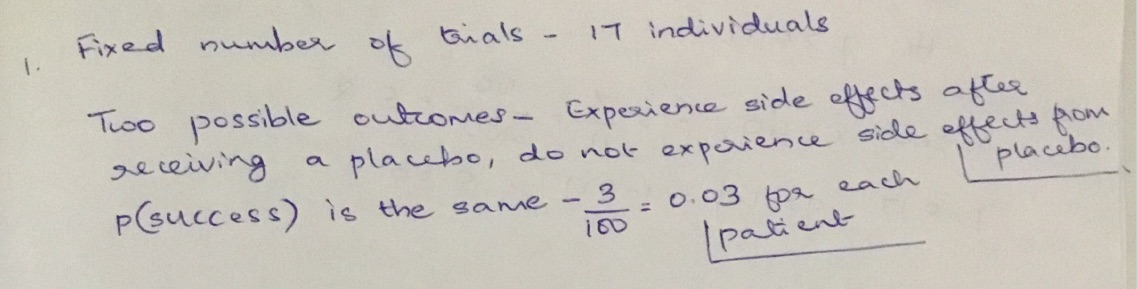 1. Fixed number of trials - 17 individuals
Two possible outcomes - Experience side effects after
receiving a placebo, do not experience side effects from
placebo.
p(success) is the same - 3/100 = 0.03 for each
patient